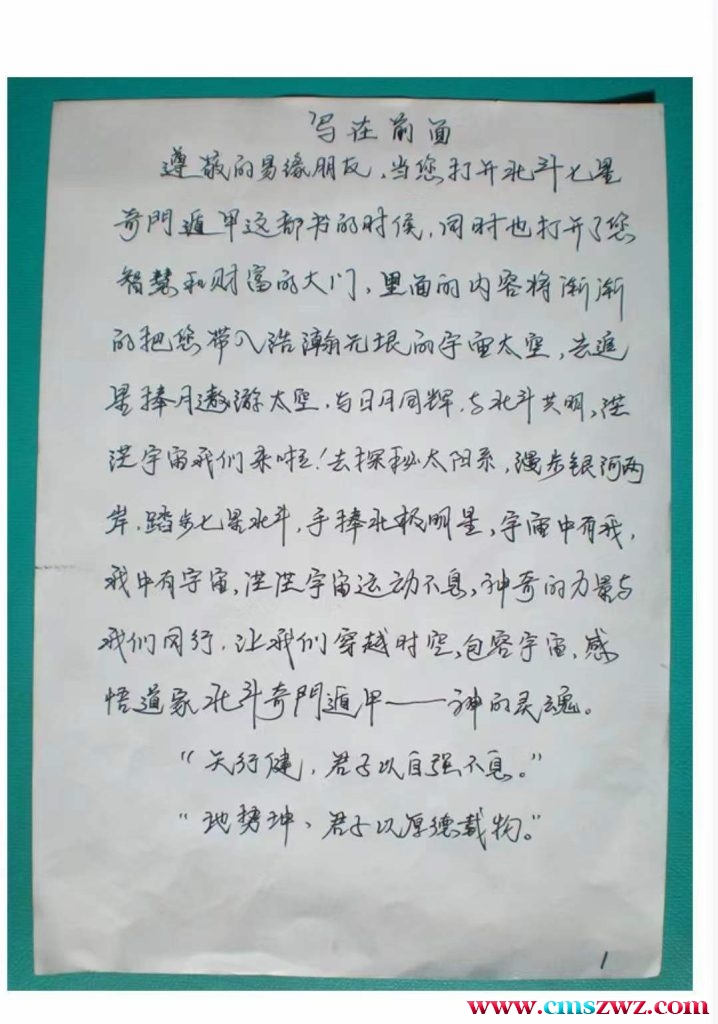 写在前面
遵敬的易缘朋友，当您打开北斗七星
奇門遁甲这部书的时候，同时也打开了您
智慧和财富的大门，里面的内容将渐渐
的把您带入浩瀚无垠的宇宙太空，去追
星捧月遨游太空，与日月同辉，与北斗共明，茫
茫宇宙我们来啦！去探秘太阳系，漫步银河两
岸，踏步七星北斗，手捧北极明星，宇宙中有我，
我中有宇宙，茫茫宇宙运动不息，神奇的力量与
我们同行，让我们穿越时空，包容宇宙，感
悟道家北斗奇門遁甲——神的灵魂。
“天行健，君子以自强不息。”
“地势坤、君子以厚德载物。”
1
www.cmszwz.com